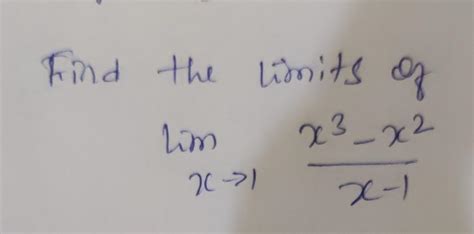 Find the limits of
lim x³ - x²
x→1 x-1